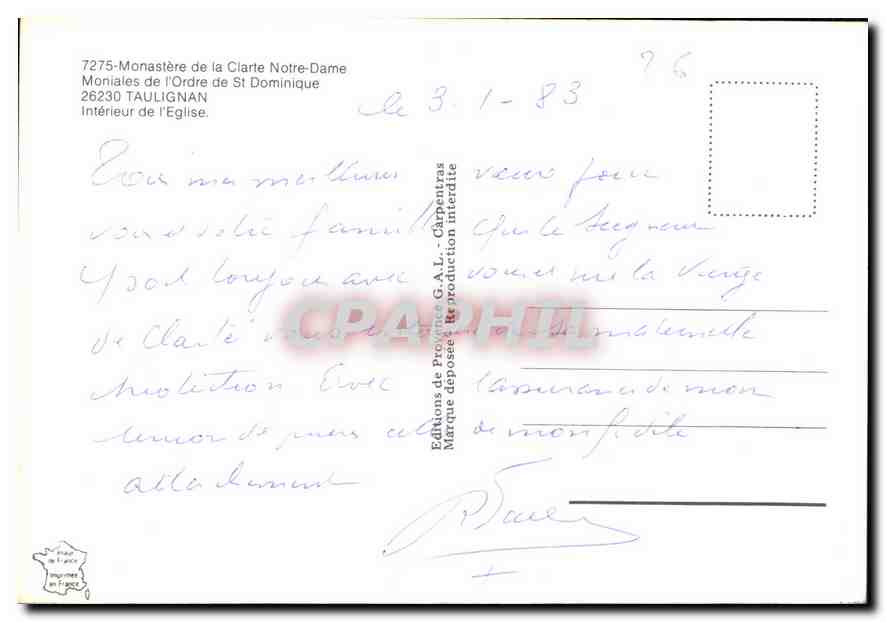 7275-Monastère de la Clarte Notre-Dame
Moniales de l'Ordre de St Dominique
26230 TAULIGNAN
Intérieur de l'Eglise.
26
le 3-1-83
Tous mes meilleurs vœux pour
vous et votre famille Que le Seigneur
y soit toujours avec vous et que la Vierge
de Clarté vous sa maternelle
Protection Avec l'assurance de mon
union de prières celle de mon fidèle
attachement
Editions de Provence G.A.L. - Carpentras
Marque déposée - Reproduction interdite
CPAPHIL
Image
de France
Imprimée
en France